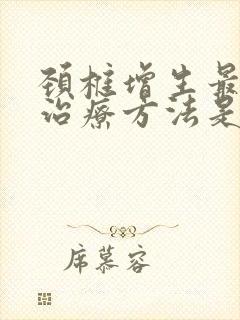 颈椎增生最
治疗方法是
席慕容